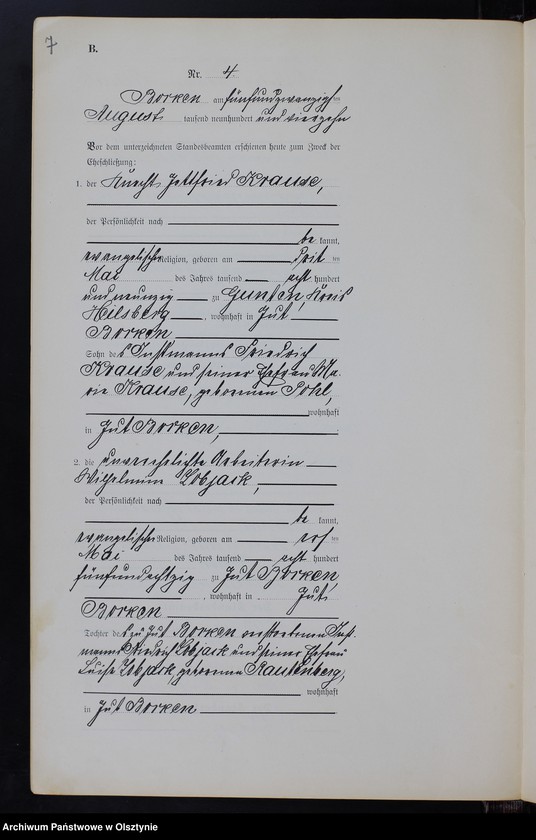 7
B.
Nr. 4
Borken am fünfundzwanzigsten
August tausend neunhundert und vierzehn
Vor dem unterzeichneten Standesbeamten erschienen heute zum Zweck der
Eheschließung:
1. der Knecht Gottfried Krause,
der Persönlichkeit nach
be kannt,
evangelischer Religion, geboren am ten
Mai des Jahres tausend acht hundert
und neunzig zu Gunten, Kreis
Heilsberg, wohnhaft in Gut
Borken
Sohn des Instmanns Friedrich
Krause und seiner Ehefrau Ma-
rie Krause, geborenen Pohl,
wohnhaft
in Gut Borken,
2. die unverehelichte Arbeiterin
Wilhelmine
der Persönlichkeit nach
be kannt,
evangelischer Religion, geboren am ten
Mai des Jahres tausend acht hundert
fünfundachtzig zu Gut Borken,
, wohnhaft in Gut
Borken
Tochter des zu Gut Borken verstorbenen Inst-
manns und seiner Ehefrau
Luise geborenen Rautenberg,
wohnhaft
in Gut Borken
Archiwum Państwowe w Olsztynie